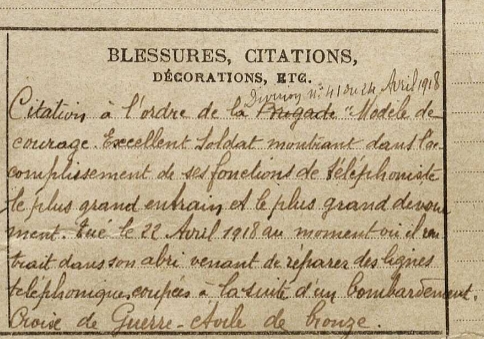 BLESSURES, CITATIONS,
DÉCORATIONS, ETC.
Division N° 41 du 24 Avril 1918
Citation à l'ordre de la Brigade "Modèle de
courage. Excellent soldat montrant dans l'ac-
complissement de ses fonctions de téléphoniste
le plus grand entrain et le plus grand dévoue
ment. Tué le 22 Avril 1918 au moment où il ren
trait dans son abri venant de réparer des lignes
téléphoniques coupées à la suite d'un bombardement.
Croix de Guerre - Etoile de bronze.